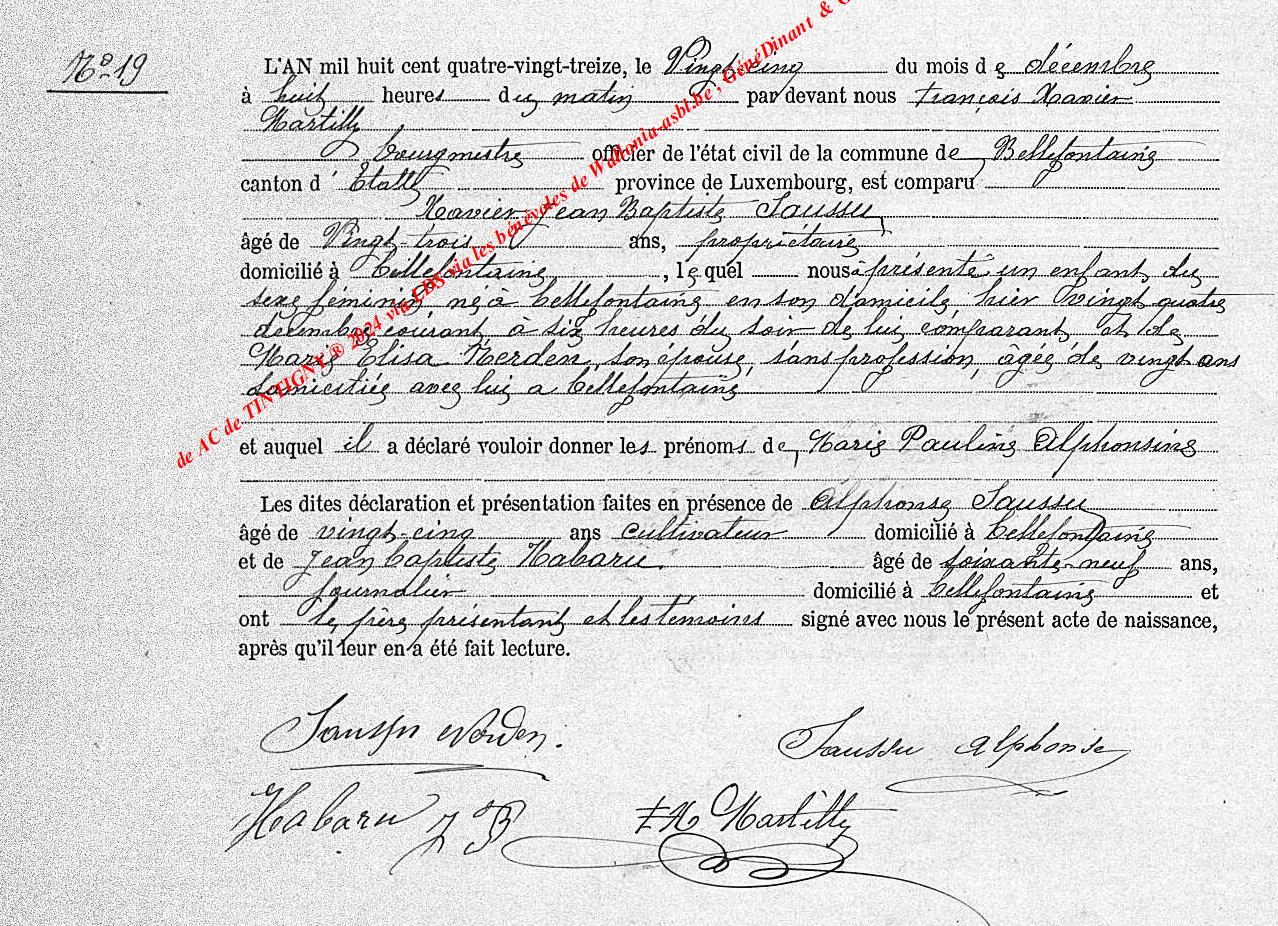 N° 19
L'AN mil huit cent quatre-vingt-treize, le Vingt-cinq du mois de décembre
à huit heures du matin par devant nous françois Xavier
Martilly
bourgmestre officier de l'état civil de la commune de Bellefontaine
canton d' Etalle province de Luxembourg, est comparu
Xavier Jean Baptiste Saussu
âgé de Vingt-trois ans, propriétaire
domicilié à bellefontaine, lequel nous a présenté un enfant du
sexe féminin né à bellefontaine en son domicile hier vingt quatre
décembre courant, à six heures du soir de lui comparant et de
Marie Elisa Nerden, son épouse, sans profession, âgée de vingt ans
domiciliée avec lui a bellefontaine
et auquel il a déclaré vouloir donner les prénoms de Marie Pauline Alphonsine
Les dites déclaration et présentation faites en présence de Alphonse Saussu
âgé de vingt-cinq ans cultivateur domicilié à bellefontaine
et de Jean baptiste Habaru âgé de soixante-neuf ans,
journalier domicilié à bellefontaine et
ont le père présentant et les témoins signé avec nous le présent acte de naissance,
après qu'il leur en a été fait lecture.
Saussu Nerden.
Saussu Alphonse
Habaru J B
FX Martilly
de AC de TINTIGNY ® 2024 via LDS via les bénévoles de Wallonia-asbl.be , GénéDinant & G